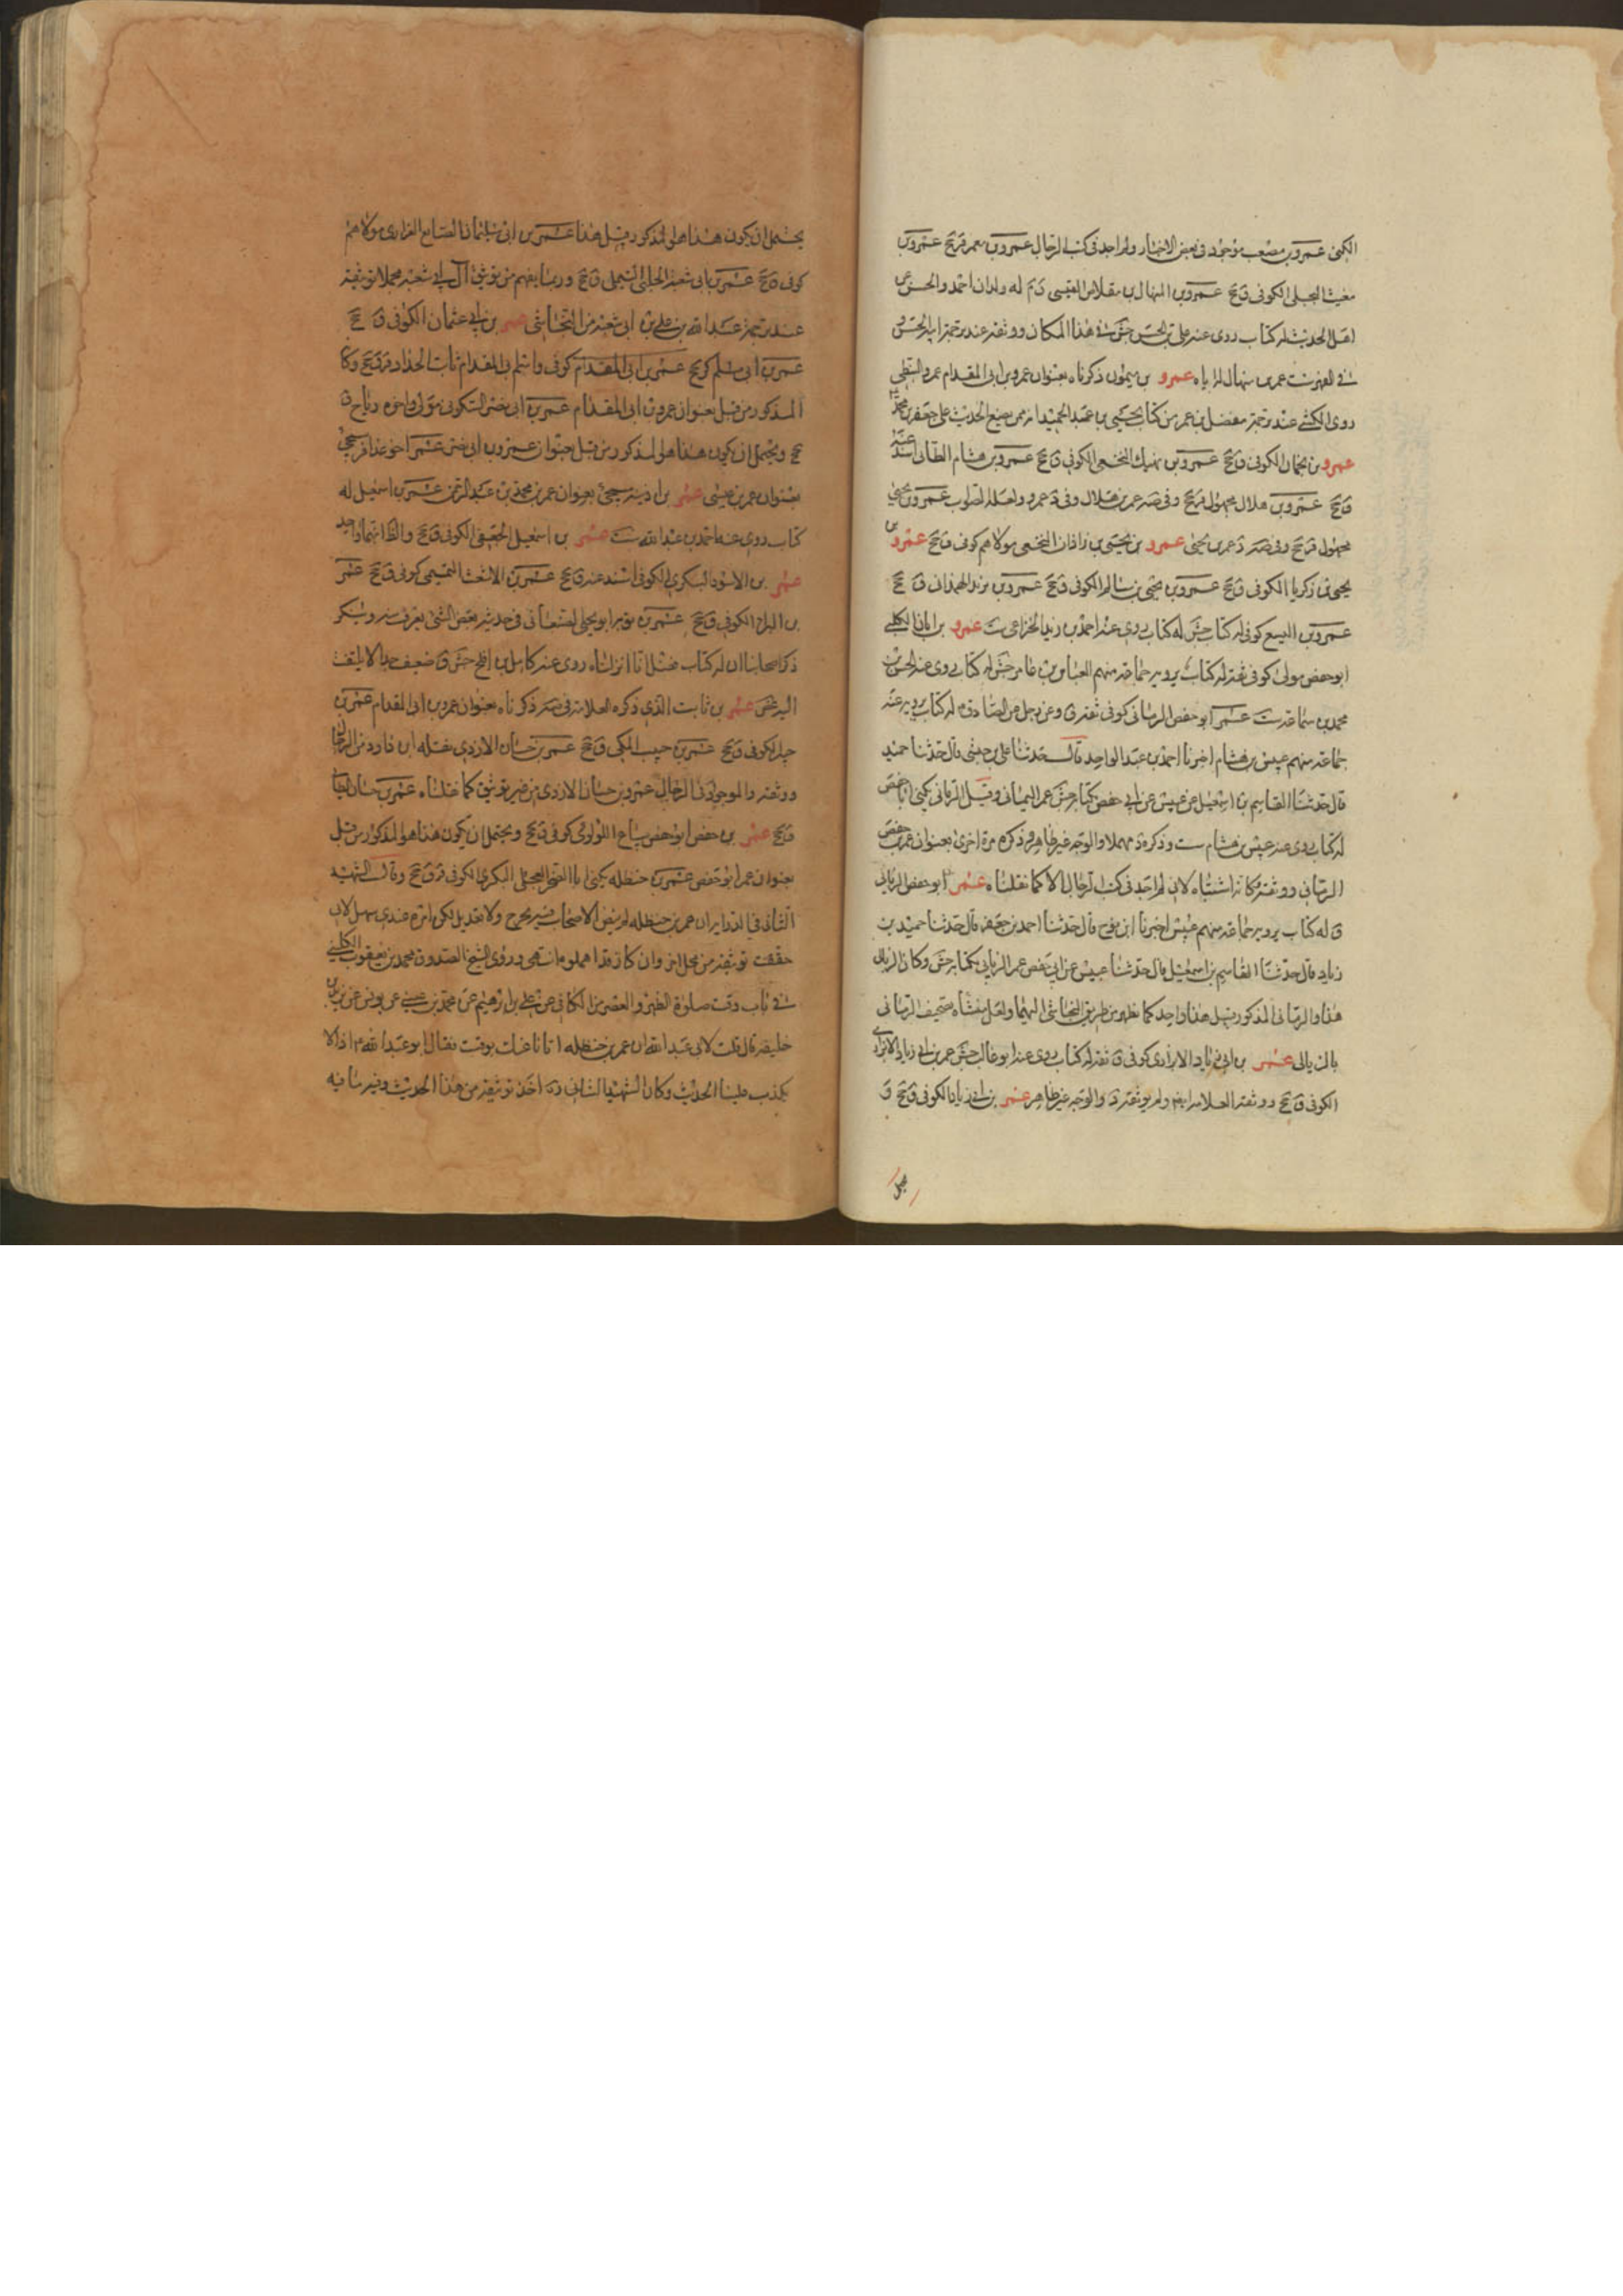 الكوفى عمرو بن مصعب موجود فى بعض الاخبار ولم اجد فى كتب الرجال عمرو بن معمر ق جخ عمرو بن
مغيث البجلى الكوفى ق جخ عمرو بن المنهال بن مقلاص القيسى له ولدان احمد والحسن من
اهل الحديث له كتاب روى عنه على بن الحسن جش فى هذا المكان ووثقه عند ترجمة ابنه الحسن و
فى الفهرست عمر بن منهال له اياه عمرو بن ميمون ذكرناه بعنوان عمرو بن ابى المقدام عمرو النبطى
روى الكشى عند ترجمة مفضل بن عمر من كتاب يحيى بن عبد الحميد انه ممن يضع الحديث على جعفر بن محمد
عمرو بن الكوفى ق جخ عمرو بن نهيك النخعى الكوفى ق جخ عمرو بن هشام الطائى اسند عنه
ق جخ عمرو بن هلال مجهول قر جخ وفى صه عمر بن هلال وفى د عمرو ولعله الصواب عمرو بن يحيى
مجهول قر جخ وفى صه د عمر بن يحيى عمرو بن يحيى بن زاذان النخعى مولاهم كوفى ق جخ عمرو بن
يحيى بن زكريا الكوفى ق جخ عمرو بن يحيى بن سالم الكوفى ق جخ عمرو بن الهمدانى ق جخ
عمرو بن اليسع كوفى له كتاب جش له كتاب روى عنه احمد بن زيد الخزاعى ست عمرو بن ابان الكلبى
ابو حفص مولى كوفى ثقة له كتاب يرويه جماعة منهم العباس بن عامر جش له كتاب روى عنه الحسن بن
محمد بن سماعة ست عمر ابو حفص الرمانى كوفى ثقة روى عن رجل عن الصادق له كتاب يرويه عنه
جماعة منهم عبيس بن هشام اخبرنا احمد بن عبد الواحد قال حدثنا على بن حبشى قال حدثنا حميد
قال حدثنا القاسم بن اسمعيل عن عبيس عن ابى حفص بكتابه جش عمر اليمانى وقيل الرمانى يكنى ابا حفص
له كتاب روى عنه عبيس بن هشام ست وذكره د مهملا والوجه غير ظاهر وذكره مرة اخرى بعنوان عمر بن حفص
الرمانى ووثقه وكانه اشتباه لانى لم اجد فى كتب الرجال الا كما نقلناه عمر ابو حفص الزبالى
ق له كتاب يرويه جماعة منهم عبيس اخبرنا ابن نوح قال حدثنا احمد بن جعفر قال حدثنا حميد بن
زياد قال حدثنا القاسم بن اسمعيل قال حدثنا عبيس عن ابى حفص عمر الزبالى بكتابه جش وكان الزبالى
هذا والرمانى المذكور قبل هذا واحد كما يظهر من طريق النجاشى اليهما ولعل منشأه تصحيف الرمانى
بالزبالى عمر بن ابى زياد الابزارى كوفى ق ثقة له كتاب روى عنه ابو غالب جش عمر بن ابى زياد الابزارى
الكوفى ق جخ ووثقه العلامة ايضا ولم يوثقه د والوجه غير ظاهر عمر بن ابى زياد الكوفى ق جخ و
يحتمل ان يكون هذا هو المذكور قبل هذا عمر بن ابى سليمان الصايغ الفزارى مولاهم
كوفى ق جخ عمر بن ابى شعبة الحلبى ق جخ وربما يفهم من توثيق آل ابى شعبة مجملا توثيقه
عند ترجمة عبد الله بن على بن ابى شعبة من النجاشى عمر بن ابى عثمان الكوفى ق جخ
عمر بن ابى مسلم كر جخ عمر بن ابى المقدام كوفى واسم ابى المقدام ثابت الحداد ق جخ وكا
المذكور من قبل بعنوان عمرو بن ابى المقدام عمر بن ابى نصر السكونى مولى واخوه رباح ق
جخ ويحتمل ان يكون هذا هو المذكور من قبل بعنوان عمرو بن ابى نصر عمر اخو عذافر سيجئ
بعنوان عمر بن عيسى عمر بن اذينة سيجئ بعنوان عمر بن محمد بن عبد الرحمن عمر بن اسمعيل له
كتاب روى عنه احمد بن عبد الله ست عمر بن اسمعيل الجعفى الكوفى ق جخ والظ انهما واحد
عمر بن الاسود البكرى الكوفى اسند عنه ق جخ عمر بن الاشعث التميمى كوفى ق جخ عمر
بن البراء الكوفى ق جخ عمر بن توبة ابو يحيى الصنعانى فى حديثه بعض الشئ يعرف منه وينكر
ذكر اصحابنا ان له كتاب فضل انا انزلناه روى عنه كامل بن افلح جش ق ضعيف جدا لا يلتفت
اليه غض عمر بن ثابت الذى ذكره العلامة فى صه ذكرناه بعنوان عمرو بن ابى المقدام عمر بن
جبلة الكوفى ق جخ عمر بن حبيب المكى ق جخ عمر بن حسان الازدى نقله ابن داود من الرجال
ووثقه والموجود فى الرجال عمرو بن حسان الازدى من غير توثيق كما نقلناه عمر بن حسان الطائى
ق جخ عمر بن حفص ابو حفص بياع اللؤلؤ كوفى ق جخ ويحتمل ان يكون هذا هو المذكور من قبل
بعنوان عمر ابو حفص عمر بن حنظلة يكنى ابا الصخر العجلى البكرى الكوفى قر ق جخ وقال الشهيد
الثانى فى الدراية ان عمر بن حنظلة لم ينص الاصحاب فيه بجرح ولا تعديل لكن امره عندى سهل لانى
حققت توثيقه من محل اخر وان كانوا قد اهملوه انتهى وروى الشيخ الصدوق محمد بن يعقوب الكلينى
فى باب وقت صلوة الظهر والعصر من الكافى عن على بن ابرهيم عن محمد بن عيسى عن يونس عن يزيد بن
خليفة قال قلت لابى عبد الله ان عمر بن حنظلة اتانا عنك بوقت فقال ابو عبد الله اذا لا
يكذب علينا الحديث وكان الشهيد الثانى ره اخذ توثيقه من هذا الحديث وفيه ما فيه